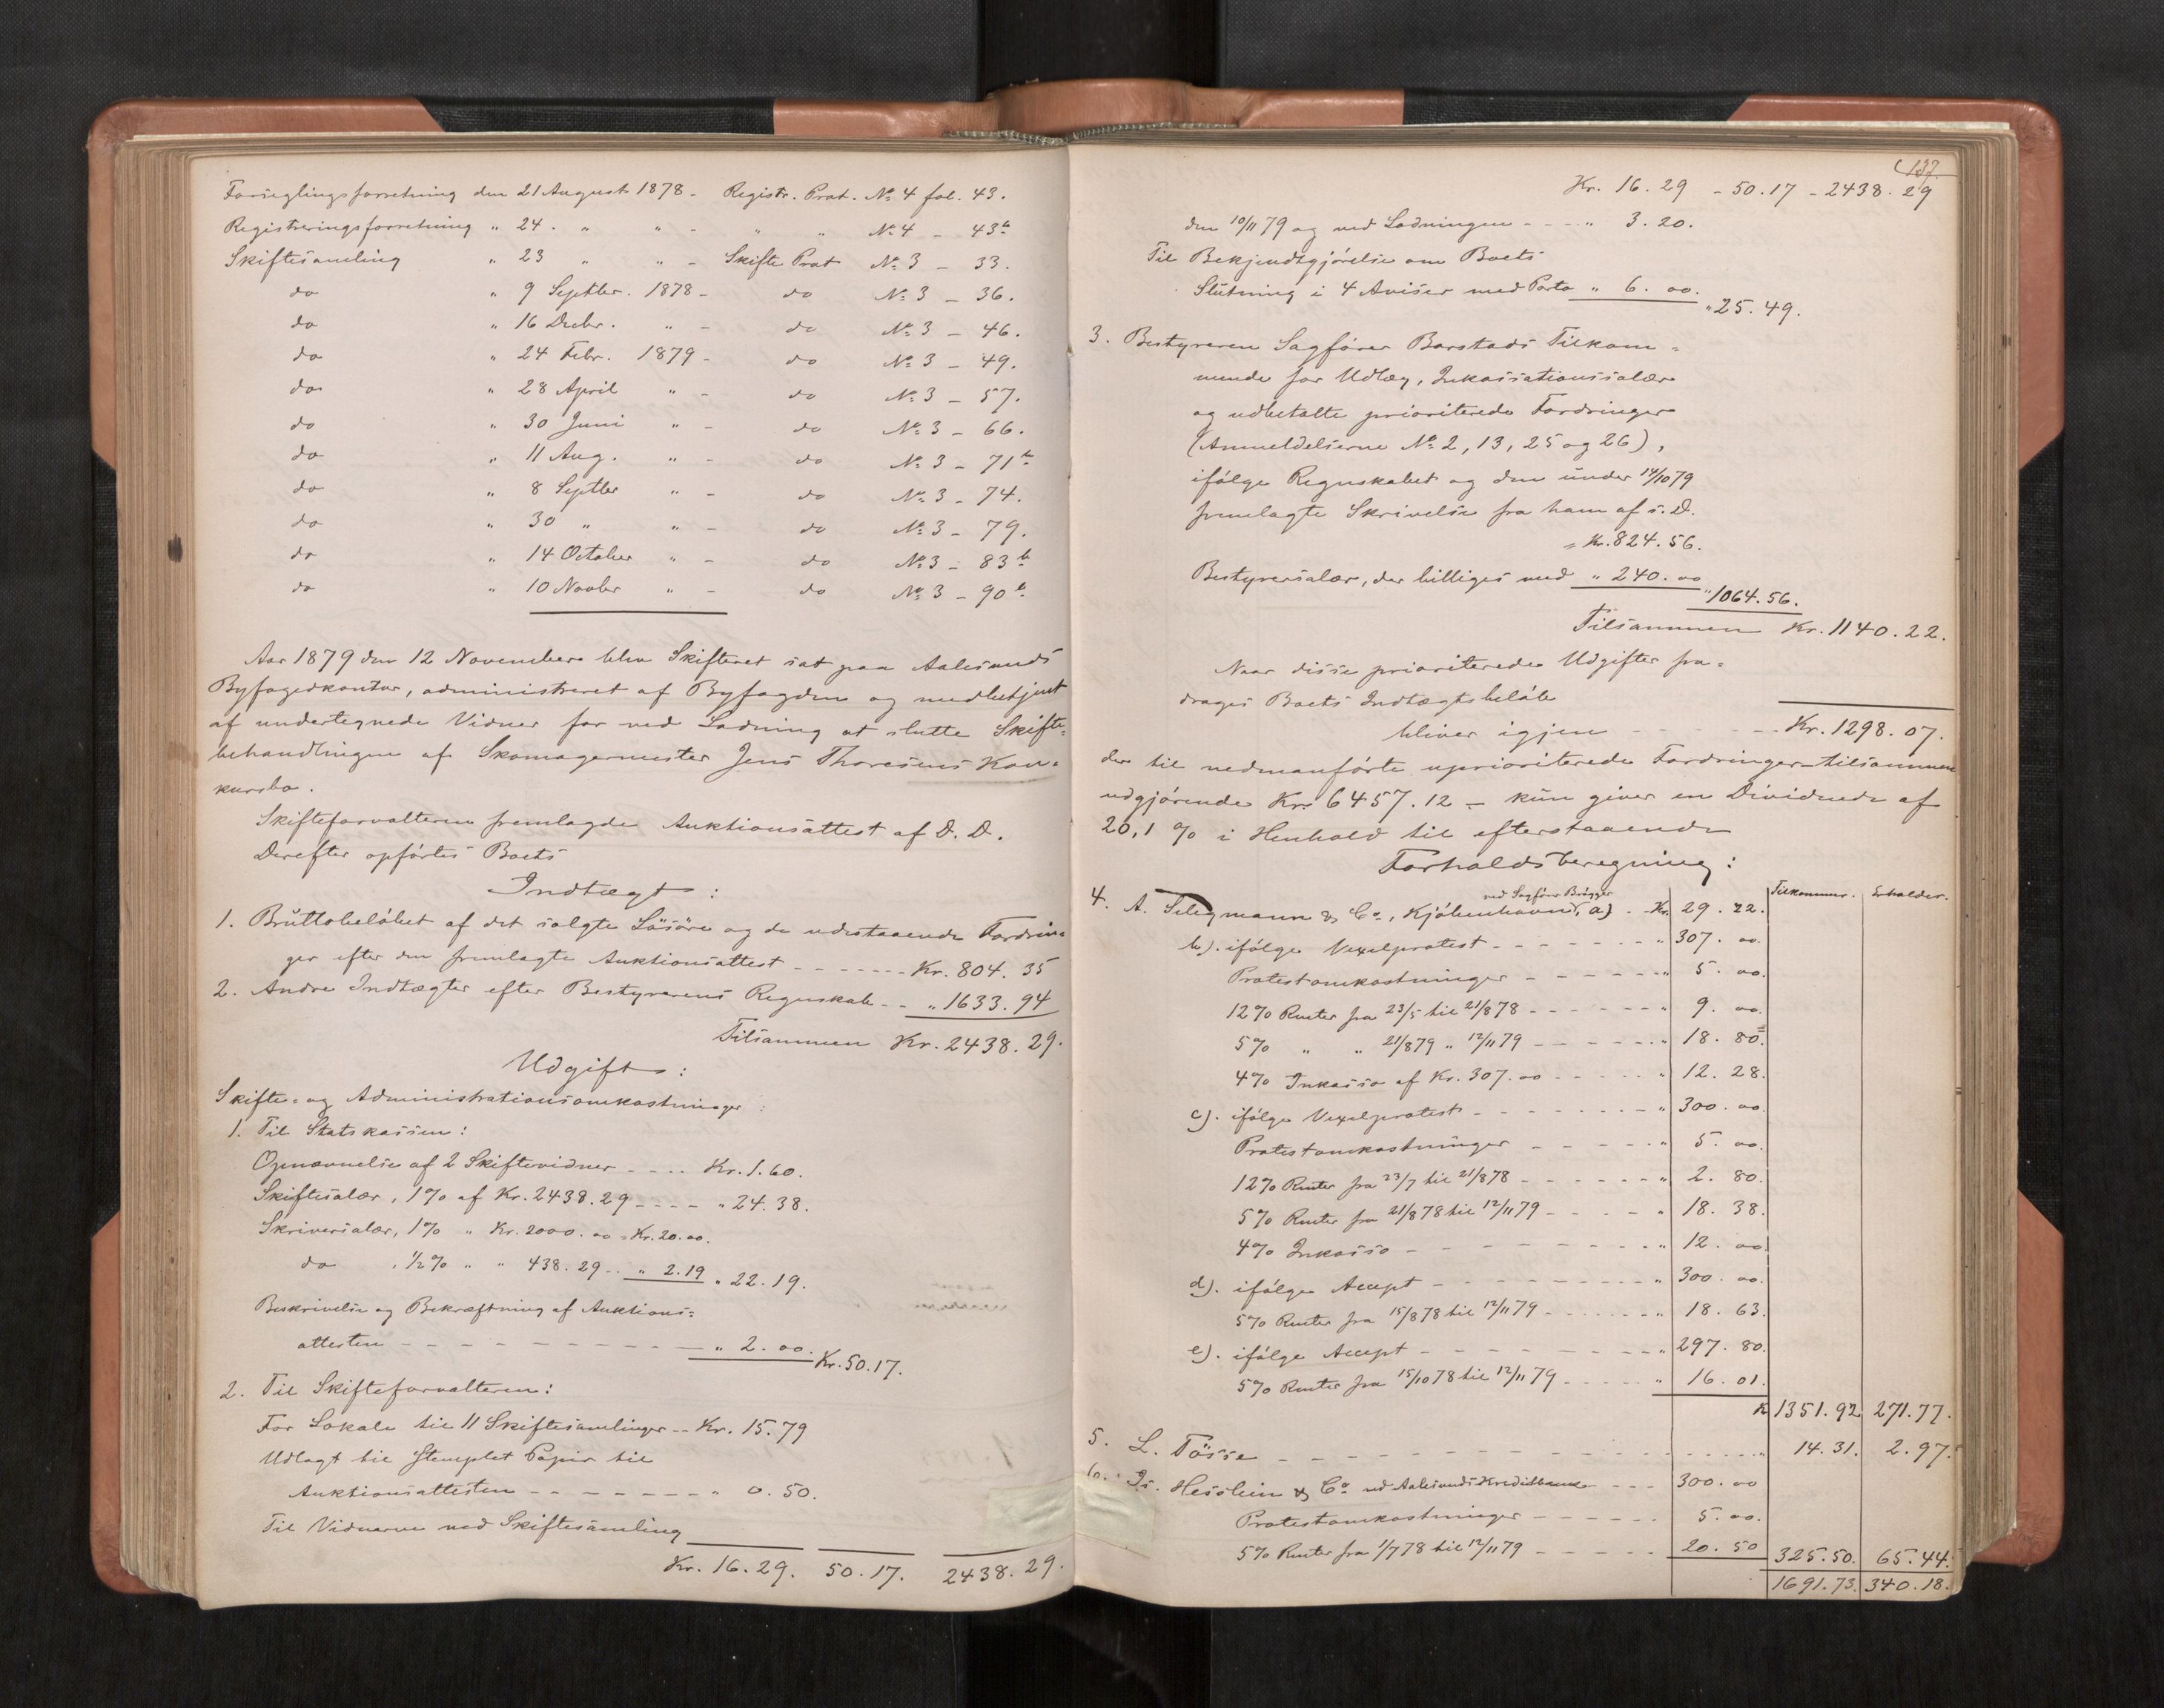 Forseglingsforretning den 21 August 1878 - Registr. Prot. No. 4 fol. 43.
Registreringsforretning " 24. " " - " " No. 4 - 43b
Skiftesamling " 23 " " - Skifte Prot No. 3 - 33.
do " 9 Septbr. 1878 - do No. 3 - 36.
do " 16 Decbr. " - do No. 3 - 46.
do " 24 Febr. 1879 - do No. 3 - 49.
do " 28 April " - do No. 3 - 57.
do " 30 Juni " - do No. 3 - 66.
do " 11 Aug. " - do No. 3 - 71b
do " 8 Septbr " - do No. 3 - 74.
do " 30 " " - do No. 3 - 79.
do " 14 October " - do No. 3 - 83b
do " 10 Novbr " - do No. 3 - 90b.
Aar 1879 den 12 November blev Skifteret sat paa Aalesunds
Byfogedkontor, administreret af Byfogden og medbetjent
af undertegnede Vidner for ved Lodning at slutte Skifte-
behandlingen af Skomagermester Jens Thoresens Kon-
kursbo.
Skifteforvalteren fremlagde Auktionsattest af D. D.
Derefter opførtes Boets
Indtægt:
1. Bruttobeløbet af det solgte Løsøre og de udestaaende Fordrin-
ger efter den fremlagte Auktionsattest - - - - Kr. 804. 35
2. Andre Indtægter efter Bestyrerens Regnskab - - " 1633. 94
Tilsammen Kr. 2438. 29.
Udgift:
Skifte- og Administrationsomkostninger:
1. Til Statskassen:
Opnævnelse af 2 Skiftevidner - - - - Kr. 1. 60.
Skiftesalær, 1% af Kr. 2438. 29 - - - - " 24. 38.
Skriversalær, 1% " Kr. 2000. 00 = Kr. 20. 00.
do , ½% " " 438. 29 - - " 2. 19 " 22. 19.
Beskrivelse og Bekræftning af Auktions-
attesten - - - - - - - - " 2. 00. Kr. 50. 17.
2. Til Skifteforvalteren:
For Lokale til 11 Skiftesamlinger - - Kr. 15. 79
Udlagt til stemplet Papir til
Auktionsattesten - - - - - - - " 0. 50.
Til Vidnerne ved Skiftesamling
Kr. 16. 29. 50. 17. 2438. 29.
137.
Kr. 16. 29 - 50. 17 - 2438. 29
den 10/11 79 og ved Lodningen - - - " 3. 20.
Til Bekjendtgjørelse om Boets
Slutning i 4 Aviser med Porto " 6. 00.
" 25. 49.
3. Bestyreren Sagfører Barstads Tilkom-
mende for Udlæg, Inkassationssalær
og udbetalte prioriterede Fordringer
(Anmeldelserne No. 2, 13, 25 og 26),
ifølge Regnskabet og den under 14/10 79
fremlagte Skrivelse fra ham af s. D.
= Kr. 824. 56.
Bestyrersalær, der billiges med " 240. 00
" 1064. 56.
Tilsammen Kr. 1140. 22.
Naar disse prioriterede Udgifter fra-
drages Boets Indtægtsbeløb
bliver igjen - - - - - Kr. 1298. 07.
der til nedenanførte uprioriterede Fordringer - tilsammen
udgjørende Kr. 6457. 12 - kun giver en Dividende af
20,1 % i Henhold til efterstaaende
Forholdsberegning:
Tilkommer. Erholder.
ved Sagfører Brøgger
4. A. Seligmann & Co., Kjøbenhavn, a) - Kr. 29. 22.
b). ifølge Vexelprotest - - - - - - - " 307. 00.
Protestomkostninger - - - - - - " 5. 00.
12% Renter fra 23/5 til 21/8 78 - - - - - - " 9. 00.
5% " " 21/8 79 " 12/11 79 - - - - - " 18. 80.
4% Inkasso af Kr. 307. 00 - - - - - " 12. 28.
c). ifølge Vexelprotest - - - - - - - " 300. 00.
Protestomkostninger - - - - - " 5. 00.
12% Renter fra 23/7 til 21/8 78 - - - - - - " 2. 80.
5% Renter fra 21/8 78 til 12/11 79 - - - - " 18. 38.
4% Inkasso - - - - - - - - " 12. 00
d). ifølge Accept - - - - - - - - " 300. 00.
5% Renter fra 15/8 78 til 12/11 79 - - - - - " 18. 63.
e). ifølge Accept - - - - - - - - " 297. 80.
5% Renter fra 15/10 78 til 12/11 79 - - - - - " 16. 01.
Kr 1351. 92 271. 77.
5. L. Tøsse - - - - - - - - - - - - " 14. 31. 2. 97.
6. Is. Hesslein & Co. ved Aalesunds Kreditbank - - - 300. 00
Protestomkostninger - - - - - - 5. 00.
5% Renter fra 1/7 78 til 12/11 79 - - - - - 20. 50 325. 50. 65. 44.
1691. 73. 340. 18.